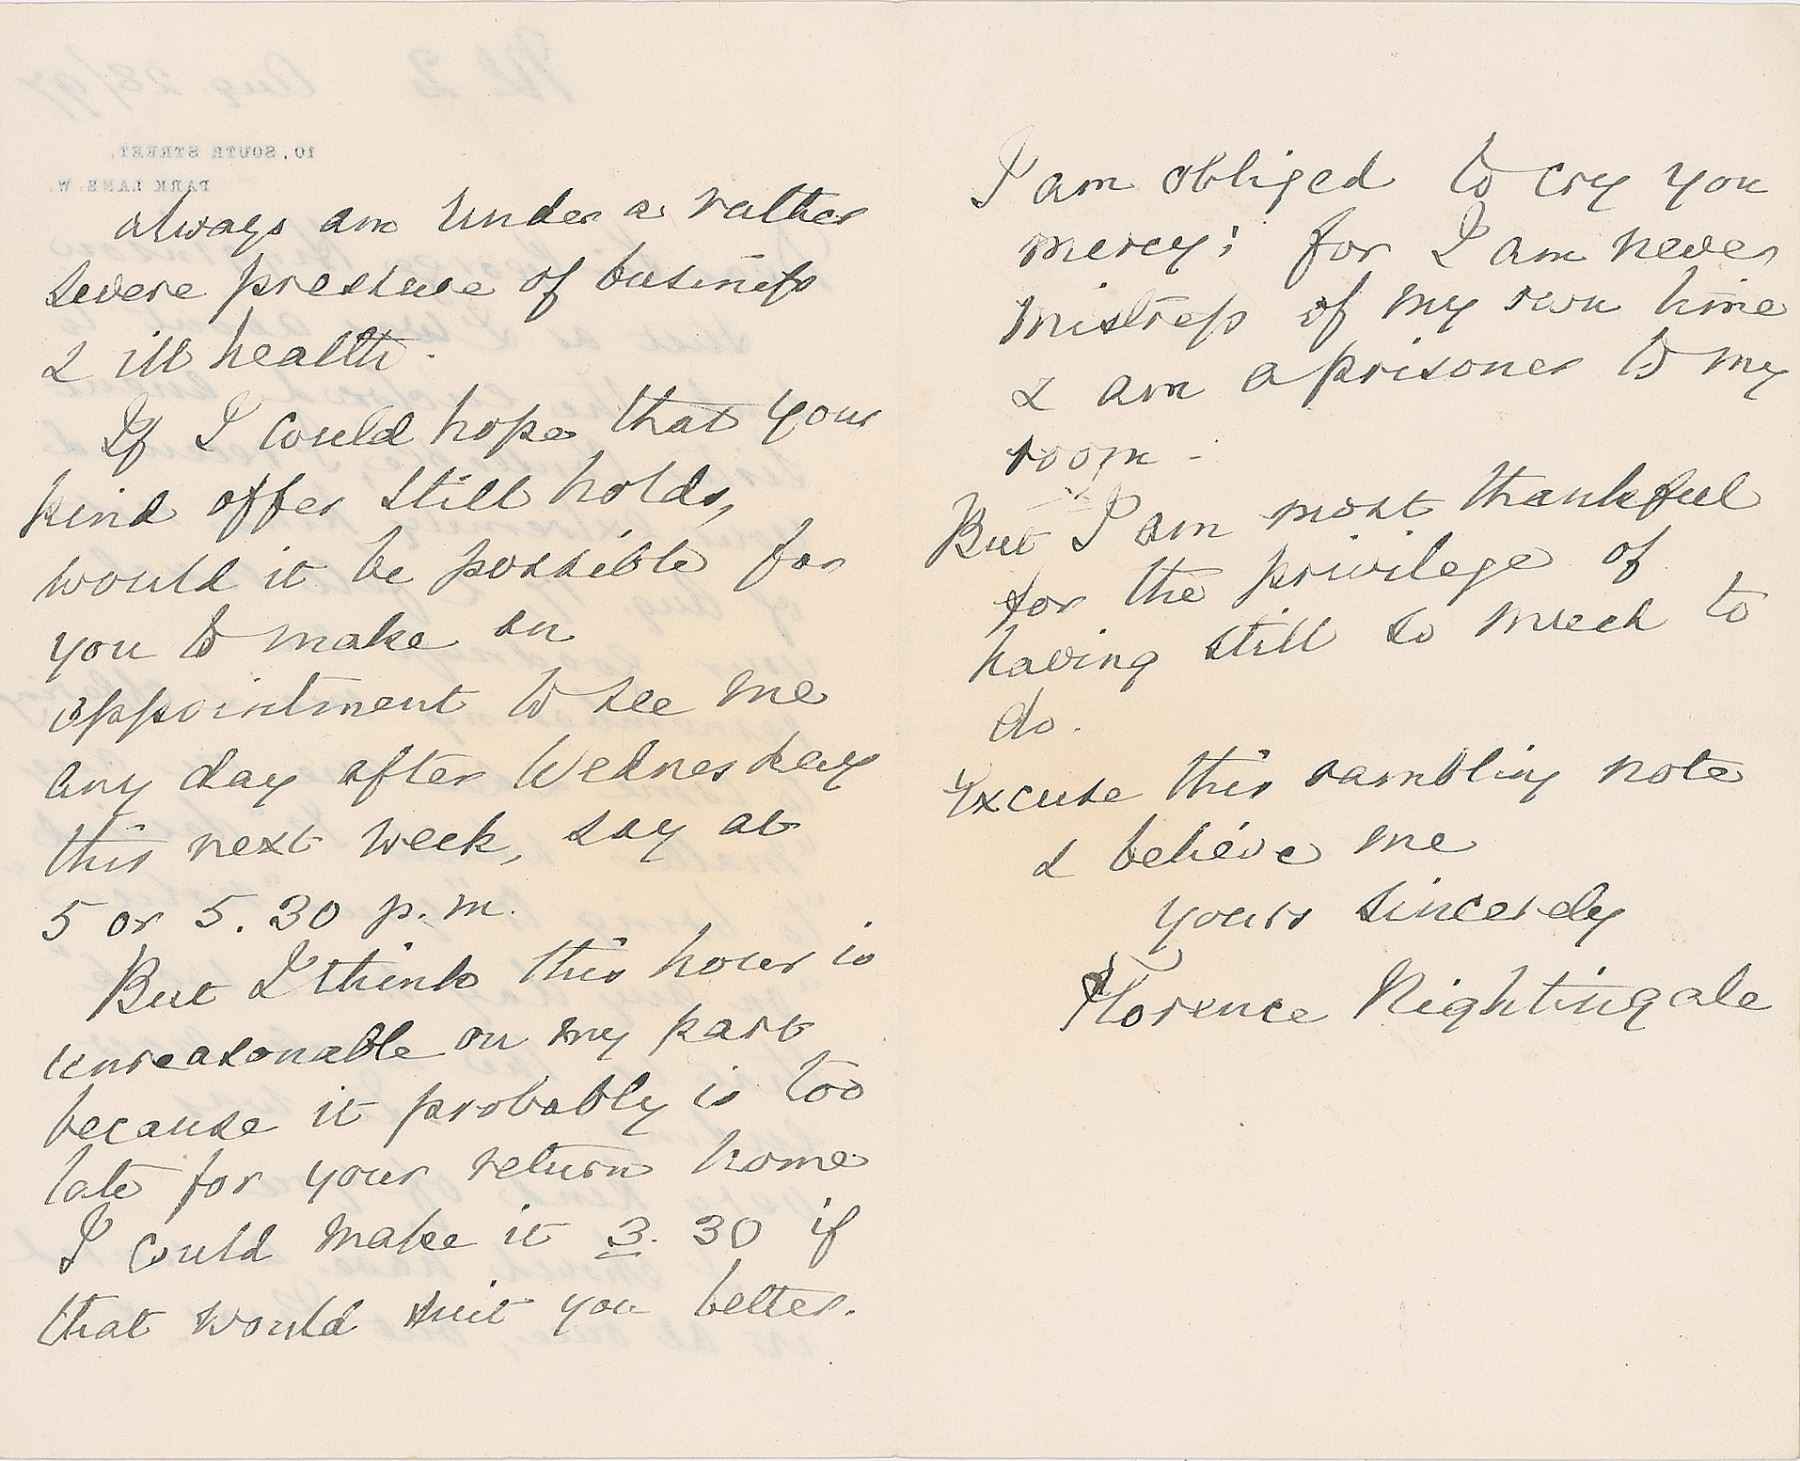 always am under a rather
severe pressure of business
& ill health.
If I could hope that your
kind offer still holds,
would it be possible for
you to make an
appointment to see me
any day after Wednesday
this next week, say at
5 or 5.30 p.m.
But I think this hour is
unreasonable on my part
because it probably is too
late for your return home
I could make it 3.30 if
that would suit you better.
I am obliged to cry you
mercy; for I am never
mistress of my own time
& am a prisoner to my
room -
But I am most thankful
for the privilege of
having still so much to
do.
Excuse this rambling note
& believe me
yours sincerely
Florence Nightingale
10, SOUTH STREET,
PARK LANE. W.
Aug 28/97